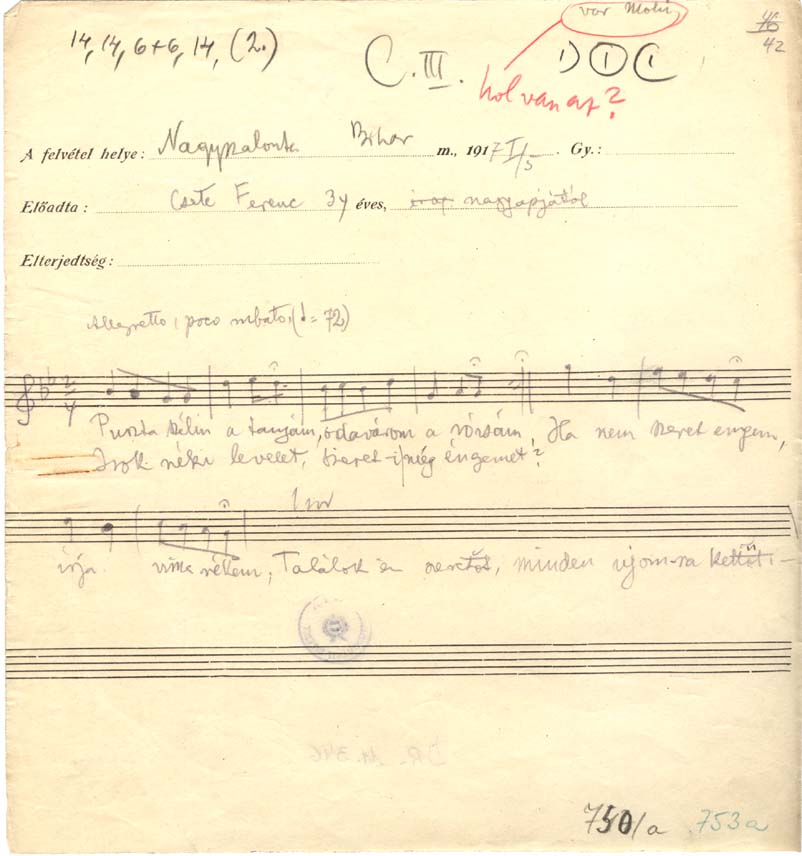 var Moln
46
42
14, 14, 6+6, 14, (2.)
C. III.
hol van az?
A felvétel helye: Nagyszalonta Bihar m., 1917 I/5. Gy.:
Előadta: Csete Ferenc 34 éves, nagyapjától
Elterjedtség:
Allegretto, poco rubato, (♩= 72)
2/4
Puszta szélin a tanyám, odavárom a rózsám, Ha nem szeret engem,
Irok néki levelet, szeret-i még éngemet?
írja vissza nékem, Találok én szeretőt, minden ujom-ra kettőt
DR. 11.346
750/a 753a